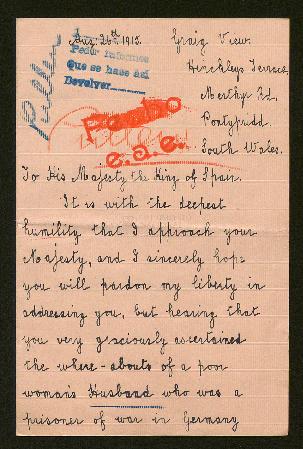 Aug. 26th 1915.
Graig View.
Hinckley Terrace,
Merthyr Rd.
Pontypridd.
South Wales.
Pedir informes
Que se hace así
Devolver
e.a.e.
To His Majesty the King of Spain.
It is with the deepest
humility that I approach your
Majesty, and I sincerely hope
you will pardon my liberty in
addressing you, but hearing that
you very graciously ascertained
the where-abouts of a poor
woman's Husband who was a
prisoner of war in Germany